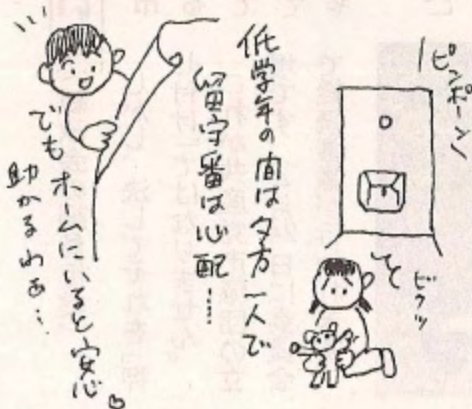 ピンポーン
ビクッ
低学年の間は夕方一人で
留守番は心配……
でもホームにいると安心
助かるわぁ…